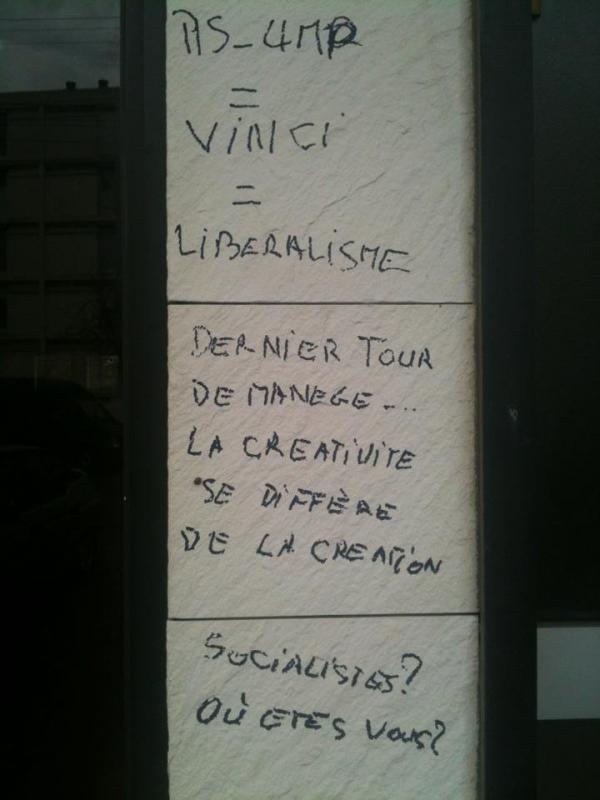 PS-UMP
=
ViNCi
=
LiBERALiSME
DERNiER TOUR
DE MANEGE ....
LA CREATiViTE
SE DiFFÈRE
DE LA CREATiON
SOCiALiSTES?
OÙ ETES VOUS?